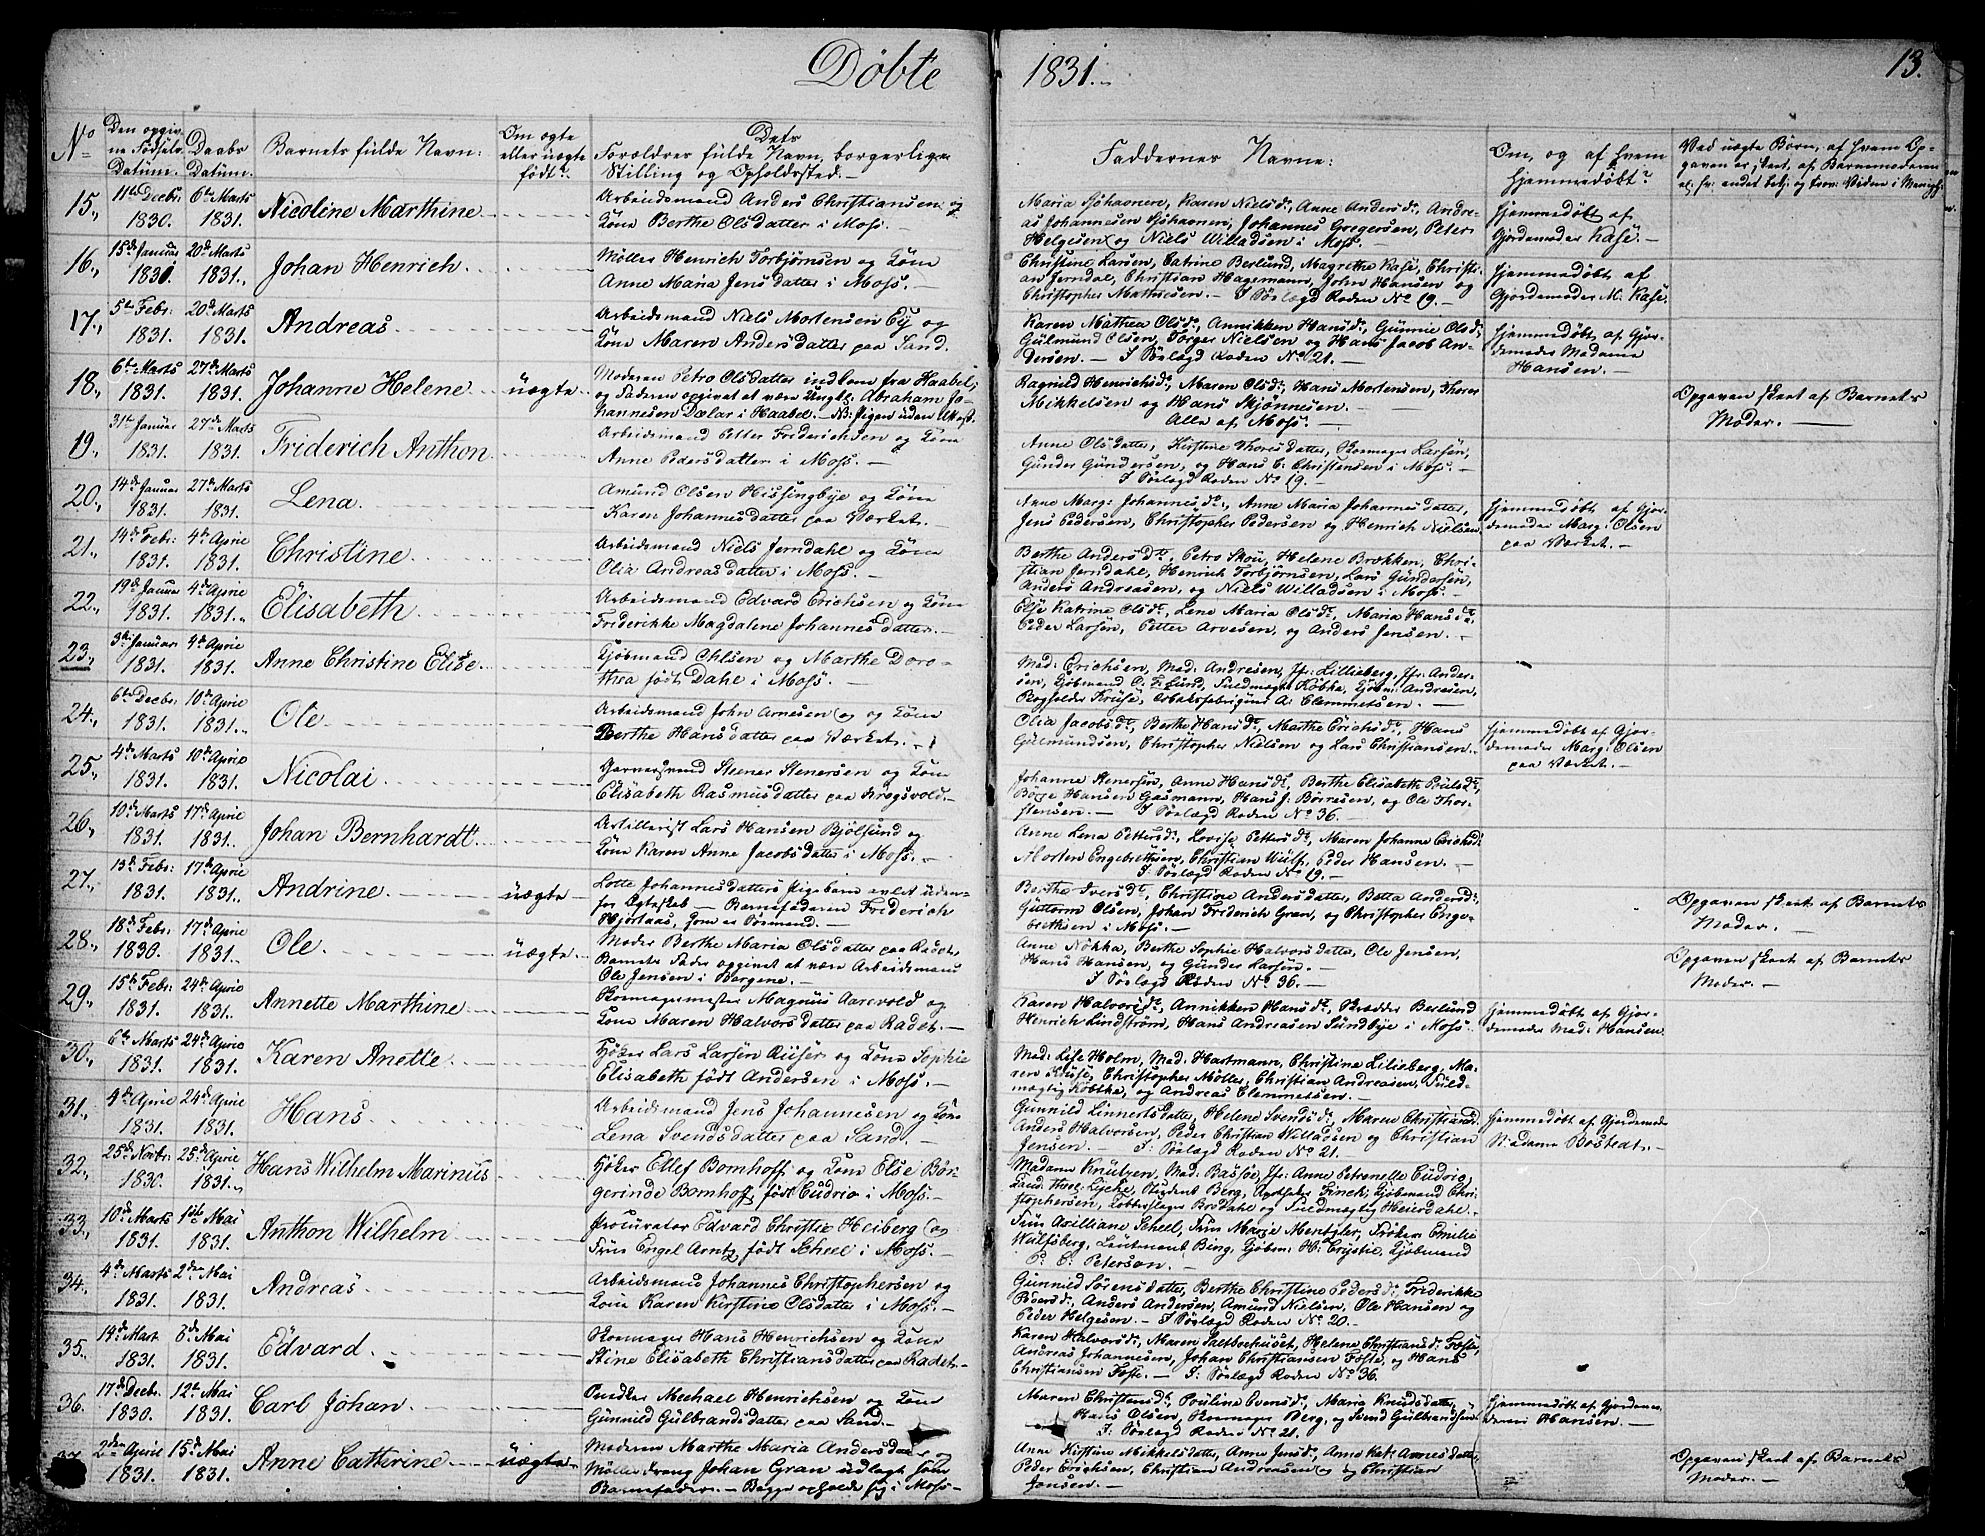 Døbte 1831. 13.
No
Den opgivne Fødsels Datum.
Daabs Datum.
Barnets fulde Navn:
Om ægte eller uægte født?
Dets Forældres fulde Navn, borgerlige Stilling og Opholdssted.—
Faddernes Navne:
Om, og af hvem hjemmedøbt?
Ved uægte Børn, af hvem Opgaven er skeet, af Barnemoderen
15., 11te Decbr: 1830. 6te Marts 1831. Nicoline Marthine
Arbeidsmand Anders Christiansen og
Kone Berthe Olsdatter i Moss.—
Johannesen, Johannes Gregersen, Peter
Helgesen og Niels Willadsen i Moss.—
Hjemmedøbt af
Gjordemoder Kasé.—
16., 15de Januar 1831. 20de Marts 1831. Johan Henrich
Møller Henrich Torbjørnsen og Kone
Anne Maria Jensdatter i Moss.—
Christine Larsen, Catrine Berlund, Magrethe Kasé, Christi-
an Jerndal, Christian Hagemann, John Hansen og
Christopher Mathiesen.— I Søelægd Roden No 19.—
Hjemmedøbt af
Gjordemoder M. Kasé.
17., 5te Febr: 1831. 20de Marts 1831. Andreas
Arbeidsmand Niels Mortensen Ey og
Kone Maren Andersdatter paa Sand.
Karen Mathea Olsd:, Annikken Hansd:, Gunnie Olsd:,
Gulmund Olsen, Torger Nielsen og Hans Jacob An-
dersen.— I Søelægd Roden No 21.—
Hjemmedøbt af Gjor-
demoder Madame
Hansen.—
18., 6te Marts 1831. 27de Marts 1831. Johanne Helene uægte
Moderen Petro Olsdatter indkom fra Haabel,
og Faderen opgivet at være Ungk: Abraham Jo-
hannesen Dælar i Haabel.— NB: Pigen uden Attest.
Ragnild Henrichsd:, Maren Olsd:, Hans Mortensen, Thores
Mikkelsen og Hans Skjønnesen.
Alle af Moss.—
Opgaven skeet af Barnets
Moder.—
19., 31te Januar 1831. 27de Marts 1831. Friderich Anthon
Arbeidsmand Petter Friderichsen og Kone
Anne Pedersdatter i Moss.—
Anne Olsdatter, Kirstine Thoresdatter, Skomager Larsen,
Gunder Gundersen, og Hans C. Christensen i Moss.—
I Søelægd Roden No 19.—
20., 14de Januar 1831. 27de Marts 1831. Lena
Amund Olsen Hissingbye og Kone
Karen Johannesdatter paa Værket.
Anne Marg: Johannesd:, Anne Maria Johannesdatter,
Jens Pedersen, Christopher Pedersen og Henrich Nielsen.
Hjemmedøbt af Gjor-
demoder Marg: Olsen
paa Værket.—
21., 14de Febr: 1831. 4de Aprie 1831. Christine
Arbeidsmand Niels Jerndahl og Kone
Olia Andreasdatter i Moss.—
Berthe Andersd:, Petro Skou, Helene Brækken, Chri-
stian Jerndahl, Henrich Torbjørnsen, Lars Gundersen,
Anders Andreasen, og Niels Willadsen i Moss.—
22., 19de Januar 1831. 4de Aprie 1831. Elisabeth
Arbeidsmand Edvard Erichsen og Kone
Friderikke Magdalene Johannesdatter.—
Else Katrine Olsd:, Lene Maria Olsd:, Maria Hansd:,
Peder Larsen, Petter Arvesen, og Anders Jensen.—
23., 3die Januar 1831. 4de Aprie 1831. Anne Christine Elise
Kjøbmand Ohlsen og Marthe Doro-
thea født Dahl i Moss.—
Mad: Erichsen, Mad: Andresen, Jfr: Lillieberg, Jfr: Ander-
sen, Kjøbmand O. F. Lund, Fuldmægt Købke, Kjøbm: Andresen,
Bogholder Kruse, Tobaksfabriqeur A: Clemmetsen.—
24., 6te Decbr: 1831. 10de Aprie 1831. Ole
Arbeidsmand John Arnesen og Kone
Berthe Hansdatter paa Værket.—
Olia Jacobsd:, Berthe Hansd:, Marthe Erichsd:, Hans
Gulmundsen, Christopher Nielsen og Lars Christiansen.—
Hjemmedøbt af Gjor-
demoder Marg: Olsen
paa Værket.—
25., 4de Marts 1831. 10de Aprie 1831. Nicolai
Garversvend Stener Stenersen og Kone
Elisabeth Rasmusdatter paa Krogsvold.—
Johanne Stenersen, Anne Hansd:, Berthe Elisabeth Poulsd:,
Børge Hansen Gasmann, Hans J: Børresen, og Ole Thor-
stensen.— I Søelægd Roden No 36.—
26., 10de Marts 1831. 17de Aprie 1831. Johan Bernhardt
Artillerist Lars Hansen Bjølsund og
Kone Karen Anne Jacobsdatter i Moss.—
Anne Lena Pettersd:, Lovise Pettersd:, Maren Johanne Erichsd:
Morten Engebrethsen, Christian Wulf, Peder Hansen.—
I Søelægd Roden No 19.—
27., 13de Febr: 1831. 17de Aprie 1831. Andrine uægte
Lotte Johannesdatters Pigebarn avlet uden-
for Ægteskab— Barnefaderen Friderich
Hjortaas, som er Sømand.—
Berthe Iversd:, Christine Andersdatter, Betta Andersd:
Guttorm Olsen, Johan Friderich Gran, og Christopher Enge-
brethsen i Moss.—
Opgaven skeet af Barnets
Moder.—
28., 18de Febr: 1830. 17de Aprie 1831. Ole uægte
Moder Berthe Maria Olsdatter paa Radet,
Barnets Fader opgivet at være Arbeidsmand
Ole Jensen i Bergene.—
Anne Nøkka, Berthe Sophie Halvorsdatter, Ole Jensen,
Hans Hansen, og Gunder Larsen.—
I Søelægd Roden No 36.—
Opgaven skeet af Barnets
Moder.—
29., 15de Febr: 1831. 24de Aprie 1831. Annette Marthine
Skomagermester Magnus Aarevold og
Kone Maren Halvorsdatter paa Radet.—
Karen Halvorsd:, Annikken Hansd:, Skrædder Berlund
Henrich Lindstrøm, Hans Andreasen Sundbye i Moss.
Hjemmedøbt af Gjor-
demoder Mad: Hansen.
30., 6te Marts 1831. 24de Aprie 1831. Karen Anette
Høker Lars Larsen Riiser og Kone Sophie
Elisabeth født Andersen i Moss.—
Mad: Lise Holm, Mad: Hartmann, Christine Lilieberg, Ma-
ren Kruse, Christopher Møller, Christian Andreasen, Fuld-
mægtig Købtke, og Andreas Clemmetsen.—
31., 4de Aprie 1831. 24de Aprie 1831. Hans
Arbeidsmand Jens Johannesen og Kone
Lena Svendsdatter paa Sand.—
Gunnild Linnertsdatter, Helene Svendsd:, Maren Christiansd:
Anders Halvorsen, Peder Christian Willadsen og Christian
Jensen.— I: Søelægd Roden No 21.—
Hjemmedøbt af Gjordemoder
Madame Bostedt.—
32., 25de Novbr: 1830. 25de Aprie 1831. Hans Wilhelm Marinius
Høker Ellef Bomhoff og Kone Else Bør-
gerinde Bomhoff, født Cudrio i Moss.—
Madame Knutzen, Mad: Basse, Jfr: Anne Petronelle Cudrio,
Cand: Theol: Lycke, Student Berg, Apotheker Finck, Kjøbmand Chri-
stophersen, Kobberslager Brodahl og Fuldmægtig Heierdahl.
33., 10de Marts 1831. 1ste Mai 1831. Anthon Wilhelm
Procurator Edvard Christie Heiberg og
Frue Engel Arntz, født Scheel i Moss.—
Frue Arilliane Scheel, Frue Marie Mentzler, Frøken Emilie
Wulfsberg, Lieutenant Bing, Kjøbm: H: Crystie, Kjøbmand
P. C. Peterson.—
34., 4de Marts 1831. 2den Mai 1831. Andreas
Arbeidsmand Johannes Christophersen og
Kone Karen Kirstine Olsdatter i Moss.—
Gunnild Sørensdatter, Berthe Christine Pedersd:, Friderikke
Boersd:, Anders Andersen, Amund Nielsen, Ole Hansen og
Peder Helgesen.— I Søelægd Roden No 20.—
35., 14de Mart 1831. 8de Mai 1831. Edvard
Skomager Hans Henrichsen og Kone
Stine Elisabeth Christiansdatter paa Radet.
Karen Halvorsd:, Maren Saltboehuset, Helene Christiansd: Foste,
Andreas Johannesen, Johan Christiansen Foste, og Hans
Christiansen Foste.— I: Søelægd Roden No 36.
36., 17de Decbr. 1830. 12te Mai 1831. Carl Johan
Snedker Mechael Henrichsen og Kone
Gunnild Gulbrandsdatter paa Sand.—
Maren Christensd:, Pouline Svensd:, Maria Knudsdatter,
Hans Olsen, Skomager Berg, og Svend Gulbrandsen.
I: Søelægd Roden No 21.
Hjemmedøbt af Gjordemo-
deren Hansen.—
37. 2den April 1831. 15de Mai 1831. Anne Catterine uægte
Moderen Marthe Maria Andersdatter,
Møllerdreng Johan Gran udlagt som
Barnefader.— Begge opholde sig i Moss.—
Anne Kirstine Mikkelsdatter, Anne Jensd:, Anne Kat: Arnesdatter,
Peder Erichsen, Christian Andreasen og Christian
Jensen.—
Opgaven skeet af Barnets
Moder.—